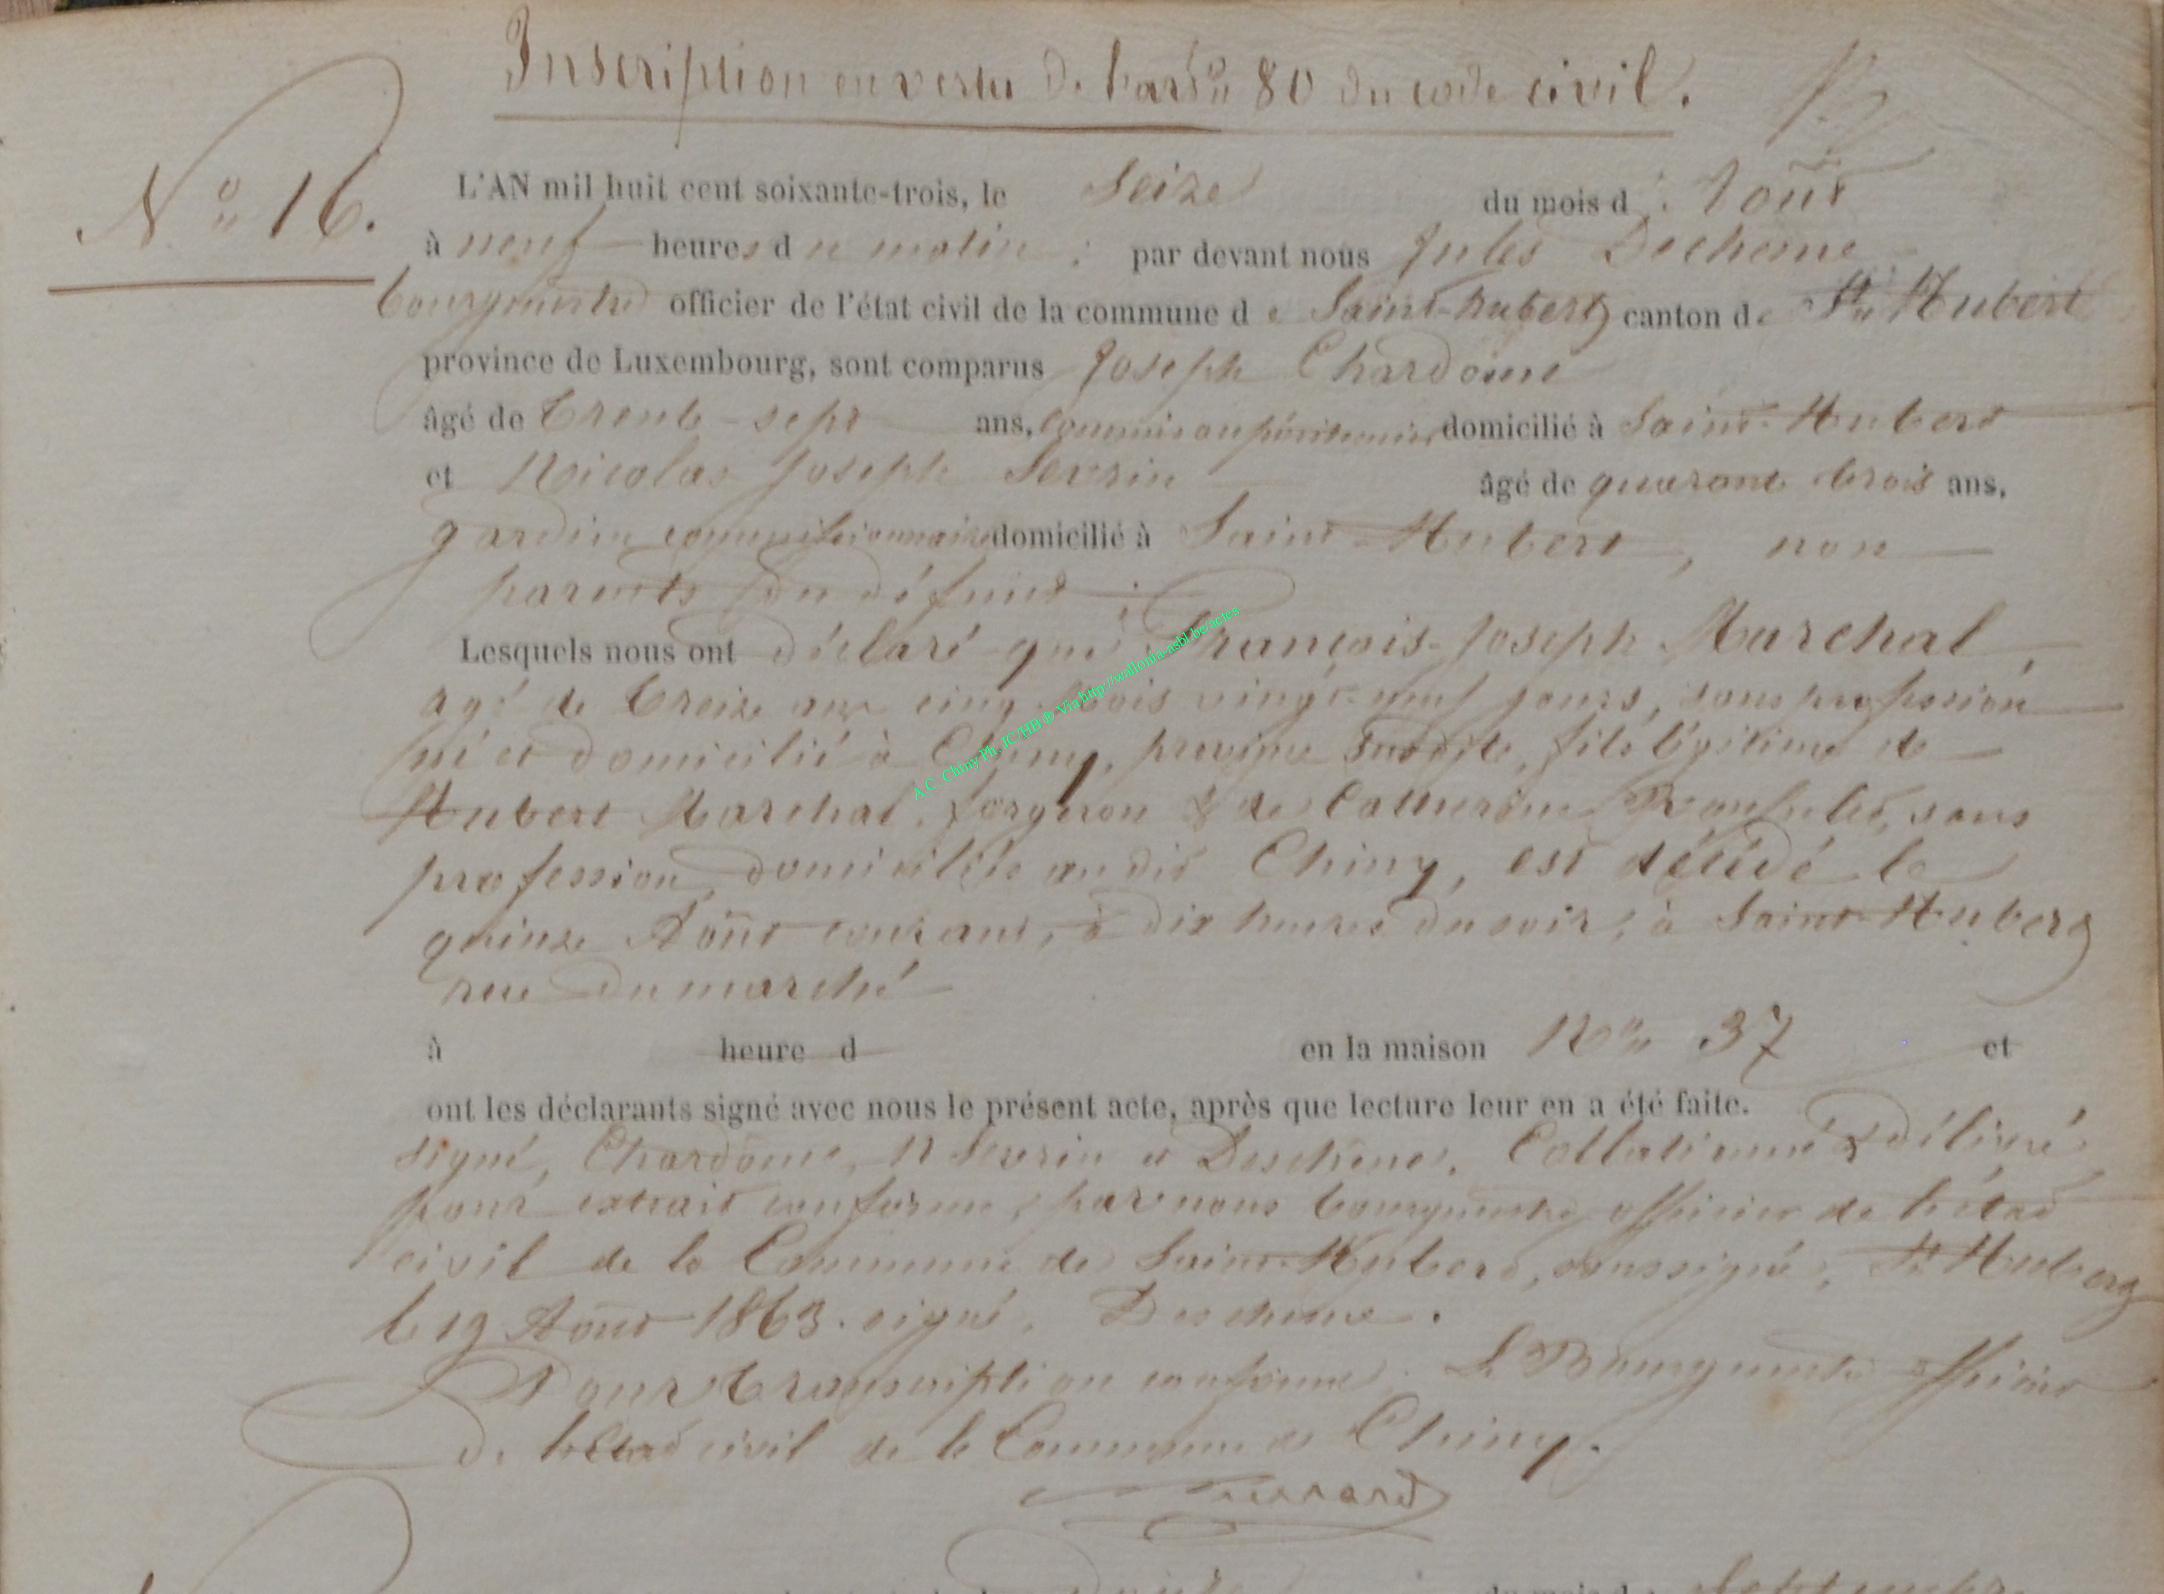 Inscription en vertu de l'art. 80 du code civil.
N° 16.
L'AN mil huit cent soixante-trois, le Seize du mois d' Août
à neuf heures du matin ; par devant nous Jules Dechesne
bourgmestre officier de l'état civil de la commune de Saint-hubert, canton de St Hubert
province de Luxembourg, sont comparus Joseph Chardome
âgé de trente-sept ans, commis au pénitencier domicilié à Saint-Hubert
et Nicolas Joseph Severin âgé de quarante trois ans,
gardien commissionnaire domicilié à Saint-Hubert, non
parents du défunt ;
Lesquels nous ont déclaré que François-Joseph Marchal,
agé de treize ans cinq mois vingt-neuf jours, sans profession
né et domicilié à Chiny, province susdite, fils légitime de
Hubert Marchal, forgeron & de Catherine sans
profession, domiciliés au dit Chiny, est décédé le
quinze Août courant, à dix heures du soir, à Saint-Hubert
rue du marché
à heure d en la maison N° 37 et
ont les déclarants signé avec nous le présent acte, après que lecture leur en a été faite.
signé, Chardome, N Severin et Deschesne. Collationné & délivré
pour extrait conforme, par nous bourgmestre officier de l'état
civil de la Commune de Saint-Hubert, soussigné, St Hubert
le 19 Août 1863. signé, Deschesne.
Pour transcription conforme. Le Bourgmestre officier
de l'état civil de la Commune de Chiny.
A.C. Chiny Ph. IC/HB ® Via http://wallonia-asbl.be/actes